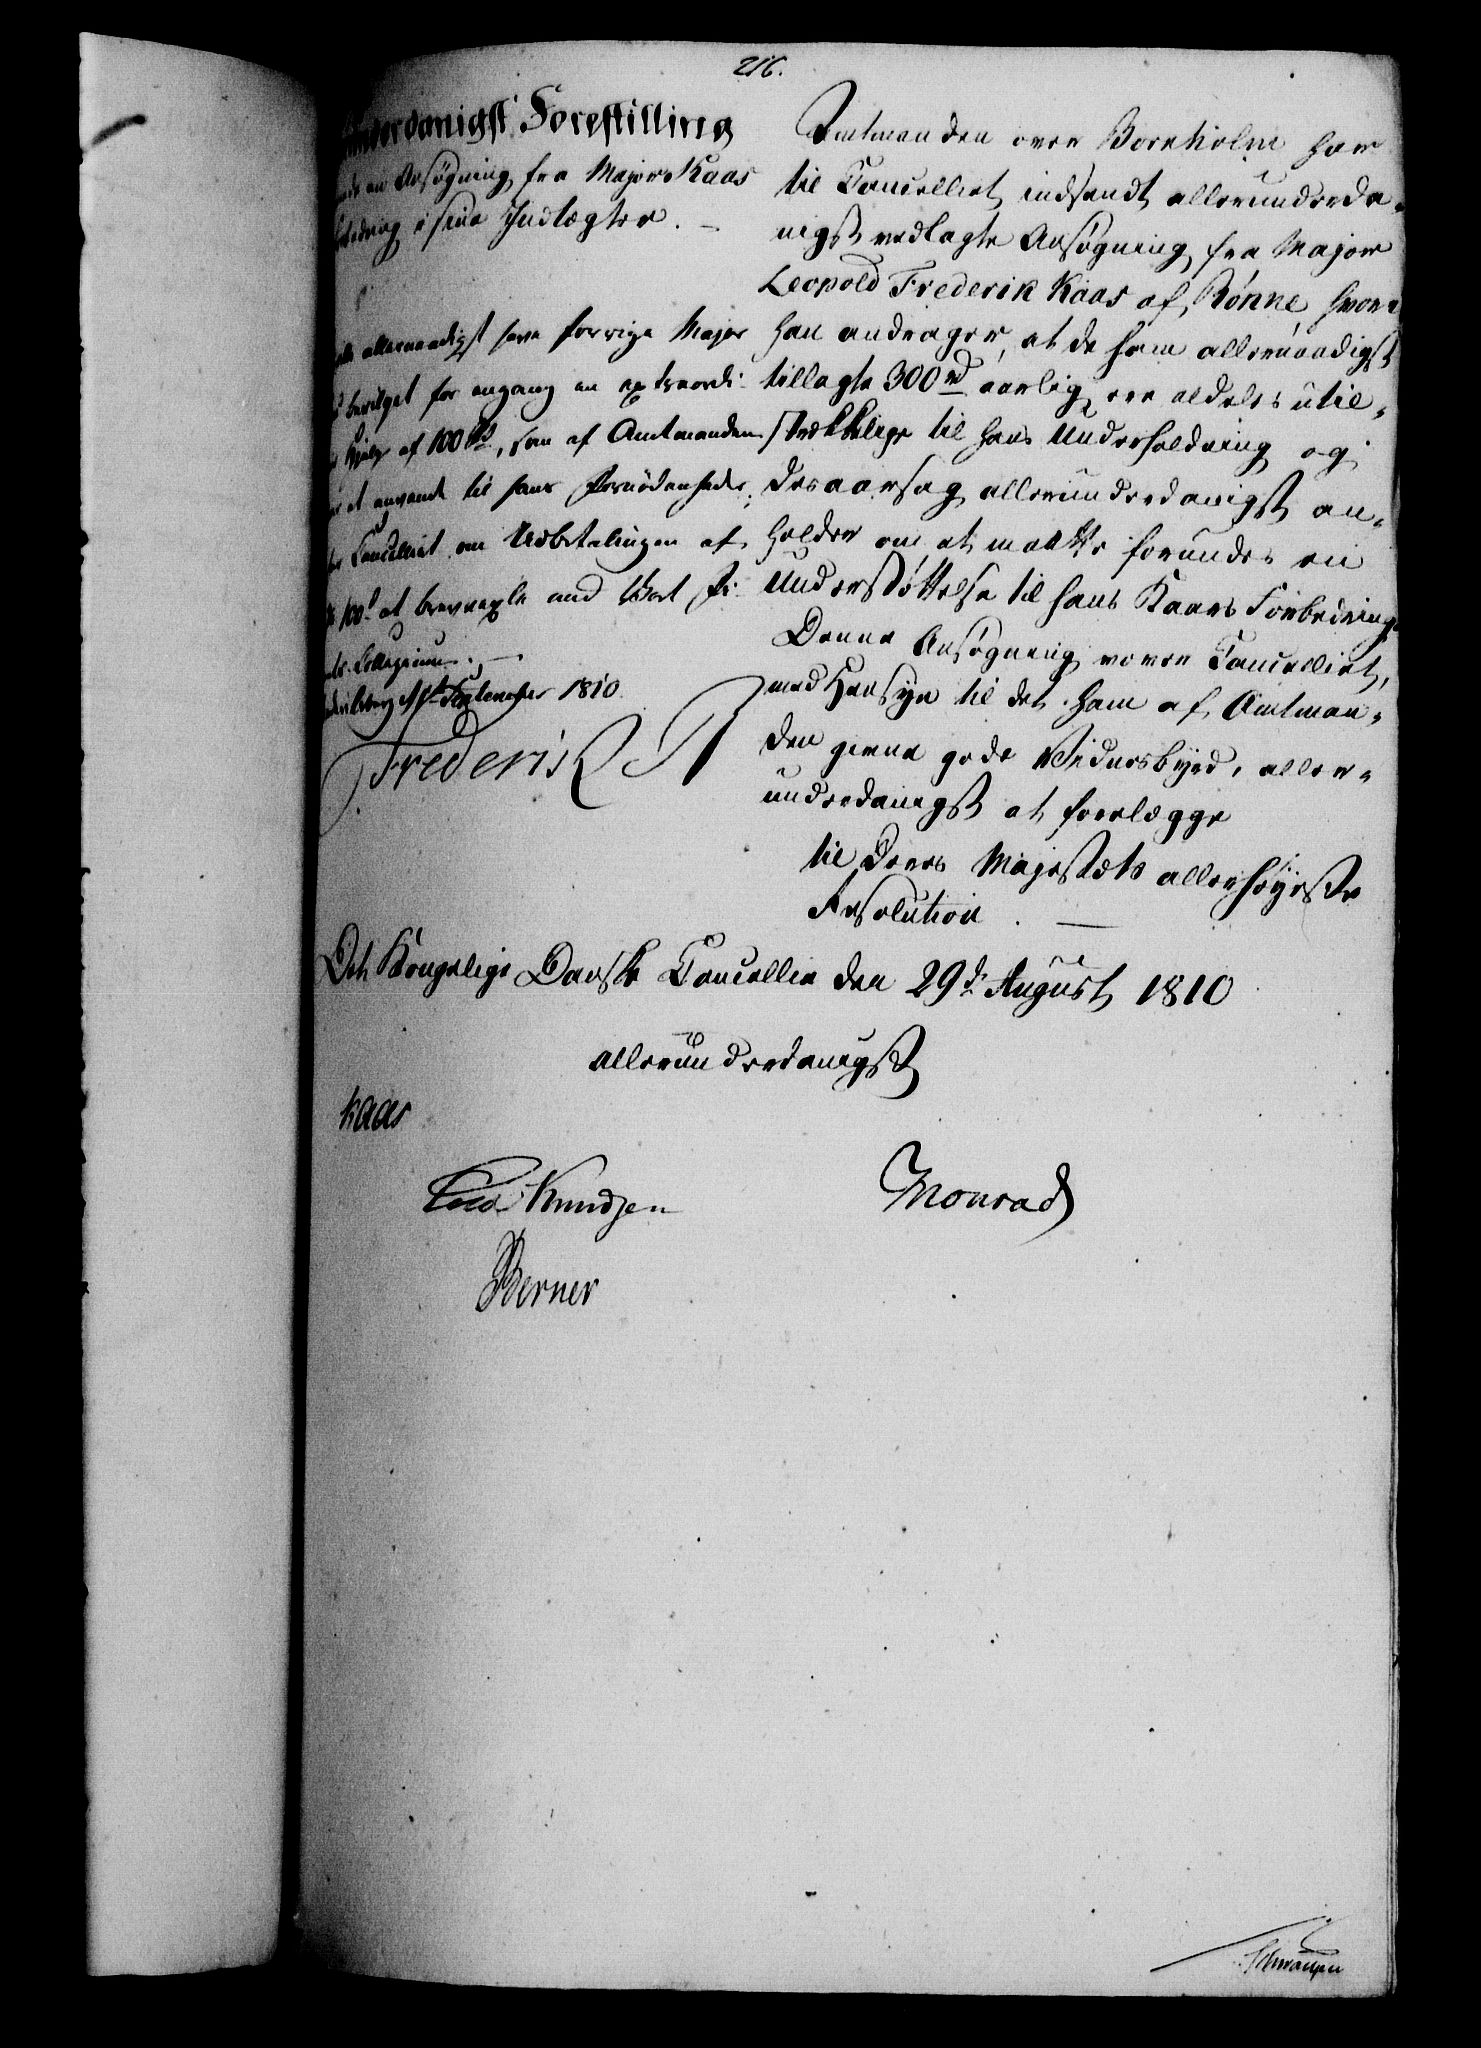 216.
underdanigst Forestilling
en Ansøgning fra Major Kaas
i sine Indtægter. –
allernaadigst have forrige Major
bevilget for engang en extraordi-
Hjelp af 100 Rd, som af Amtmanden
at anvende til hans Fornødenheder,
Cancelliet om Udbetalingen af
100 rd at brevvexle med Vort Fi-
Collegium. –
September 1810.
Frederik R
Amtmanden over Bornholm har
til Cancelliet indsendt allerunderda-
nigst vedlagte Ansøgning fra Major
Leopold Frederik Kaas af Rønne hvori
han andrager, at de ham allernaadigst
tillagte 300 rd aarlig ere aldeles util-
strækkelige til hans Underholdning og
desaarsag allerunderdanigst an-
holder om at maatte forundes en
Understøttelse til hans Kaars Forbedring
Denne Ansøgning vover Cancelliet,
med Hensyn til det ham af Amtman-
den givne gode Vidnesbyrd, aller-
underdanigst at forelægge
til Deres Majestæts allerhøyeste
Resolution. –
Det Kongelige Danske Cancellie den 29de August 1810
allerunderdanigst
Kaas
Knudsen
Monrad
Berner